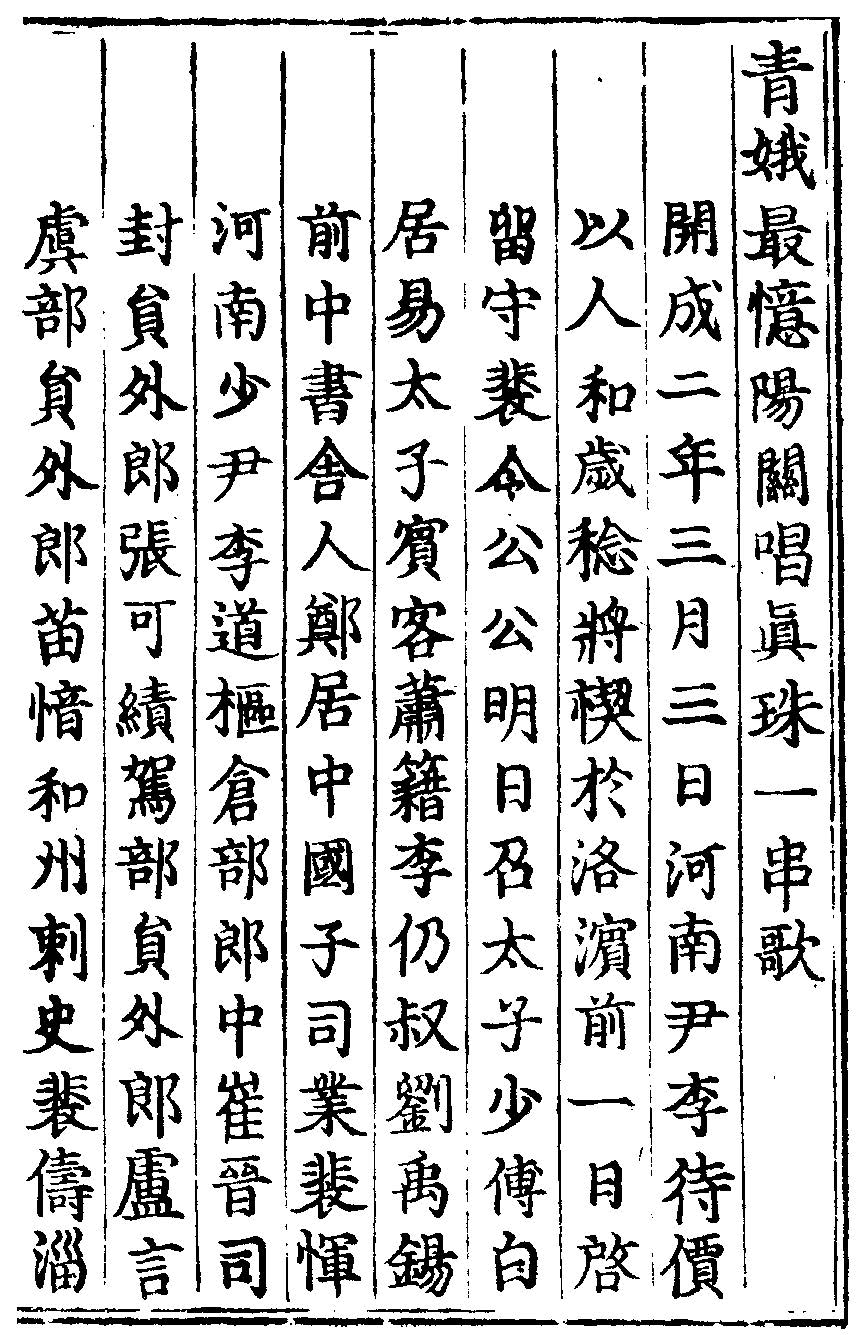 青娥最憶陽關唱眞珠一串歌
開成二年三月三日河南尹李待價
以人和歲稔將禊於洛濵前一日啓
留守裴令公公明日召太子少傅白
居易太子賓客蕭籍李仍叔劉禹錫
前中書舎人鄭居中國子司業裴惲
河南少尹李道樞倉部郎中崔晉司
封貟外郎張可績駕部貟外郎盧言
虞部貟外郎苗愔和州刺史裴儔淄